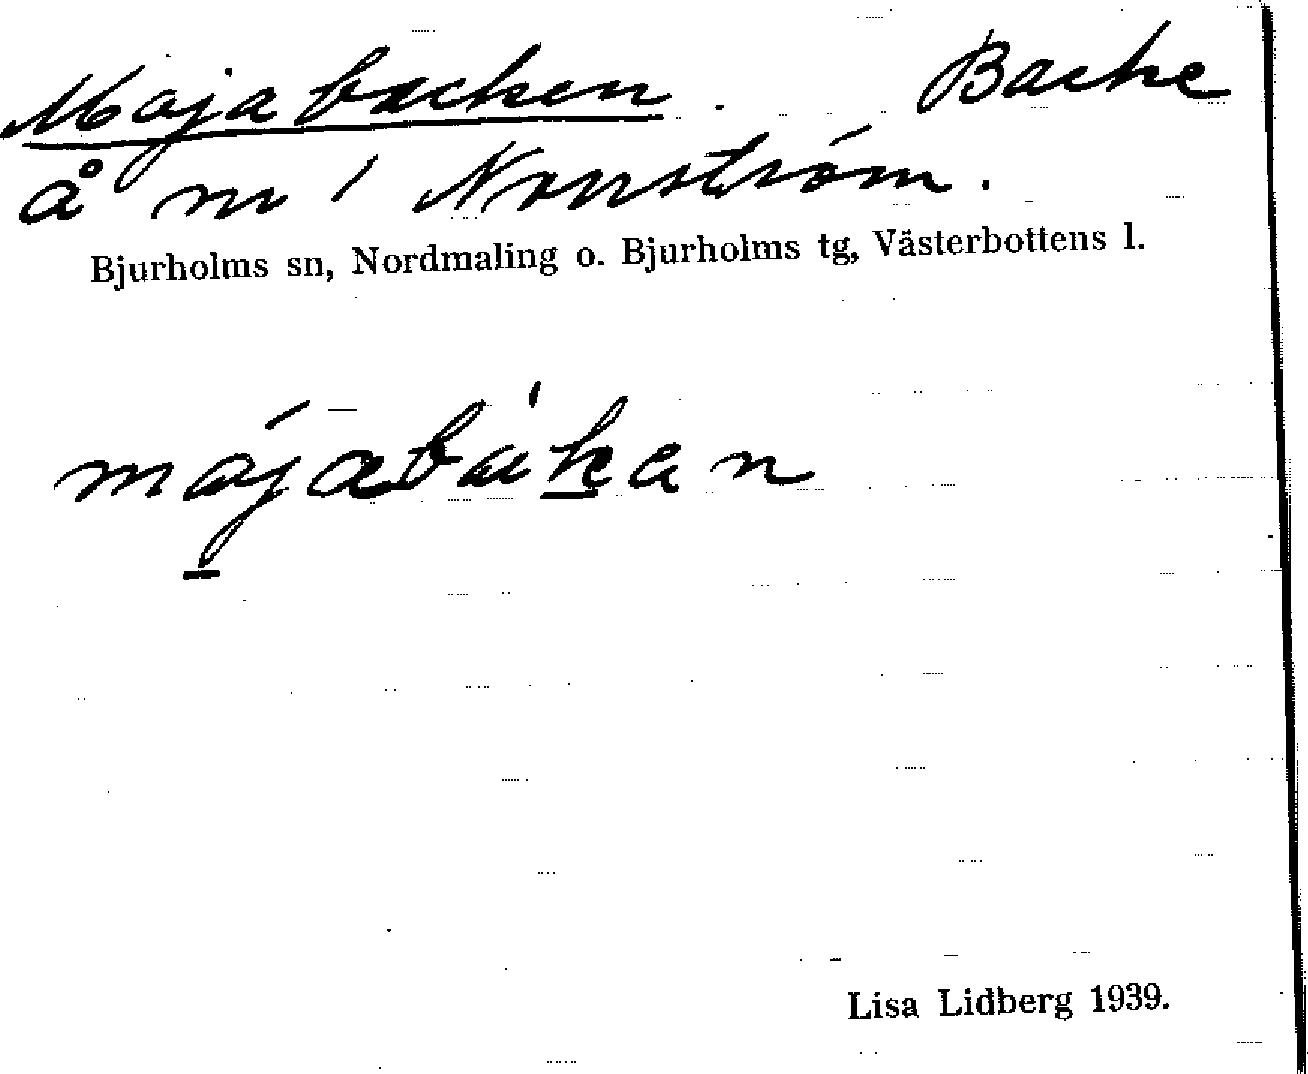 Majabacken. Backe
å m / Norrström.
Bjurholms sn, Nordmaling o. Bjurholms tg, Västerbottens l.
májabákan
Lisa Lidberg 1939.